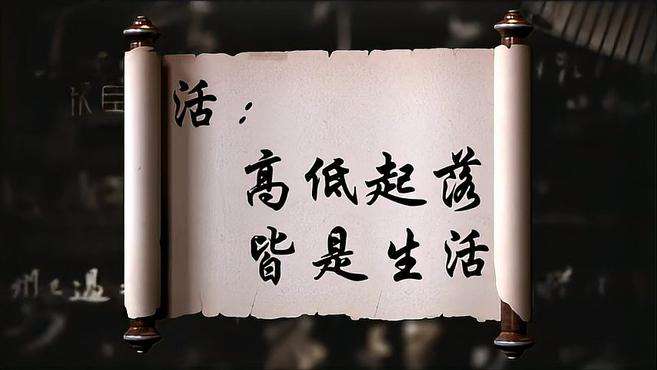 活：
高低起落
皆是生活